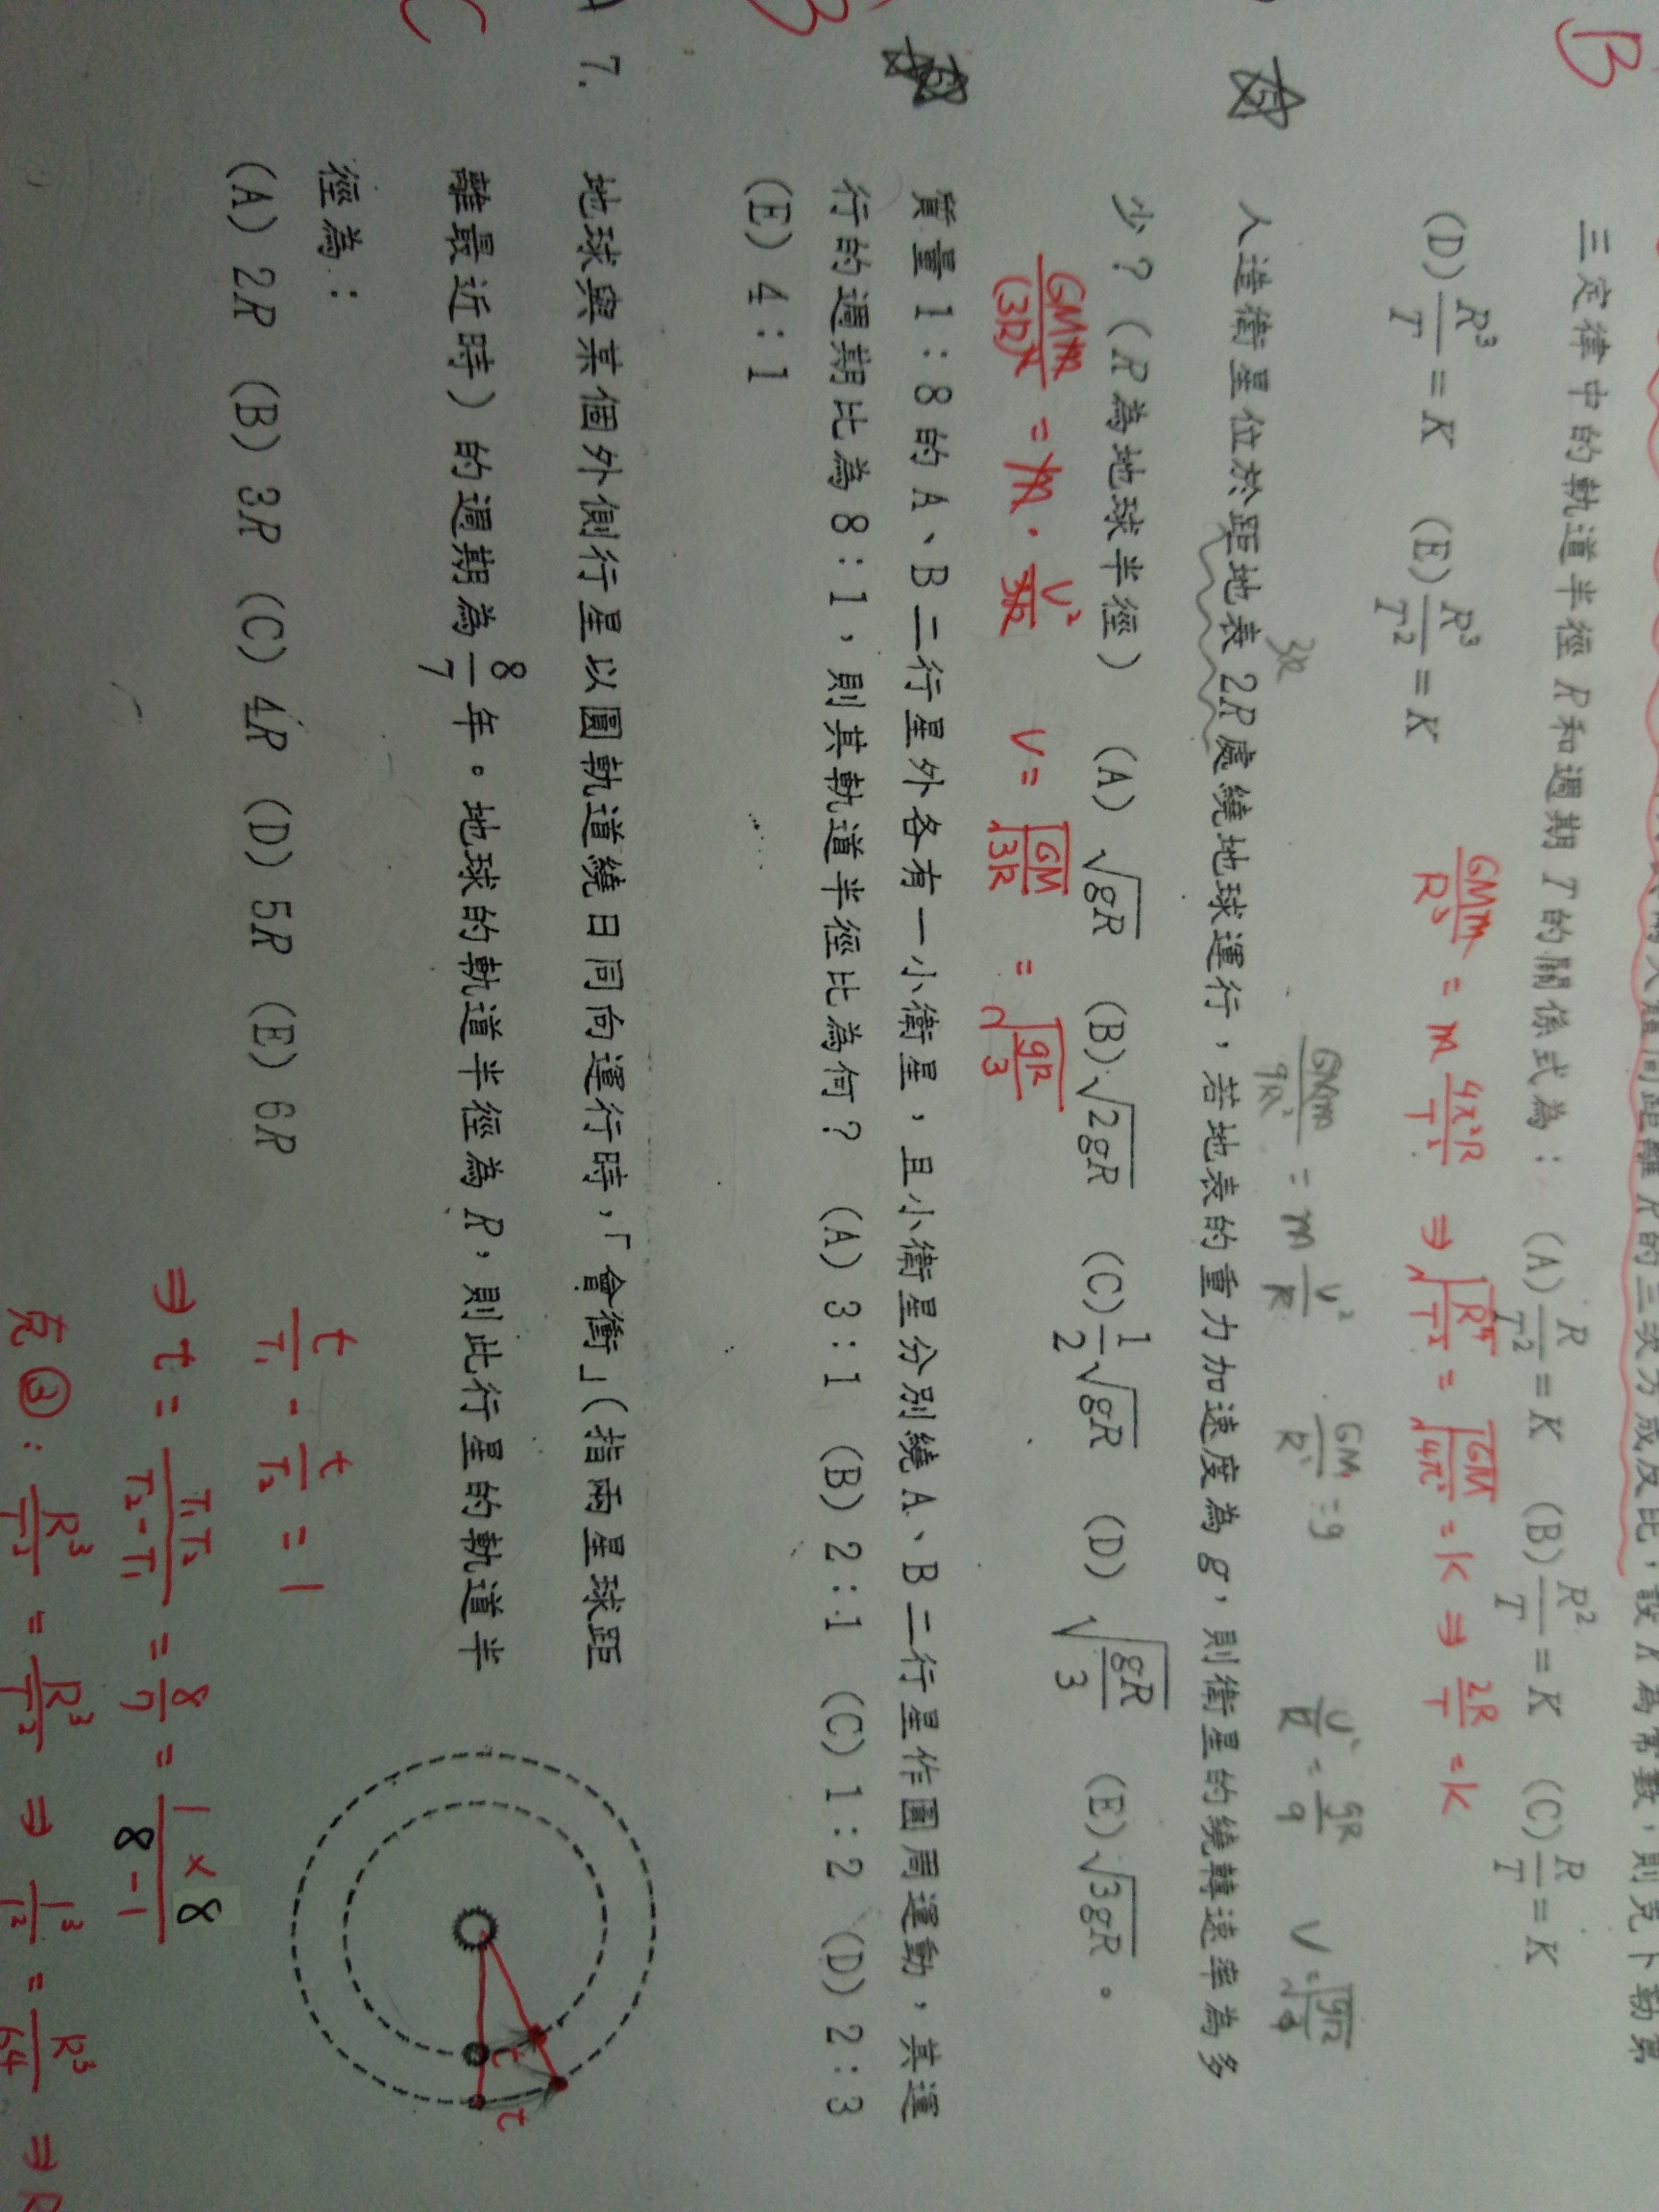 B
三定律中的軌道半徑 R 和週期 T 的關係式為： (A) R/T² = K (B) R²/T = K (C) R/T = K
(D) R³/T = K (E) R³/T² = K
GMm/R³ = m 4π²R/T² ⇒ √(R⁴/T²) = √(GM/4π²) = K ⇒ R²/T = K
3R
GMm/9R² = m V²/R GM/R² = g
人造衛星位於距地表 2R 處繞地球運行，若地表的重力加速度為 g，則衛星的繞轉速率為多
少？（R 為地球半徑） (A) √gR (B) √2gR (C) 1/2 √gR (D) √(gR/3) (E) √3gR 。
GMm/(3R)² = m · V²/3R V = √(GM/3R) = √(gR/3)
B
質量 1：8 的 A、B 二行星外各有一小衛星，且小衛星分別繞 A、B 二行星作圓周運動，其運
行的週期比為 8：1，則其軌道半徑比為何？ (A) 3：1 (B) 2：1 (C) 1：2 (D) 2：3
(E) 4：1
C
7. 地球與某個外側行星以圓軌道繞日同向運行時，「會衝」（指兩星球距
離最近時）的週期為 8/7 年。地球的軌道半徑為 R，則此行星的軌道半
徑為：
(A) 2R (B) 3R (C) 4R (D) 5R (E) 6R
t
t
t/T₁ - t/T₂ = 1
⇒ t = T₁T₂/(T₂-T₁) = 8/7 = 1×8/(8-1)
克③： R³/T² = R³/T² ⇒ 1³/1² = R³/64 ⇒ R